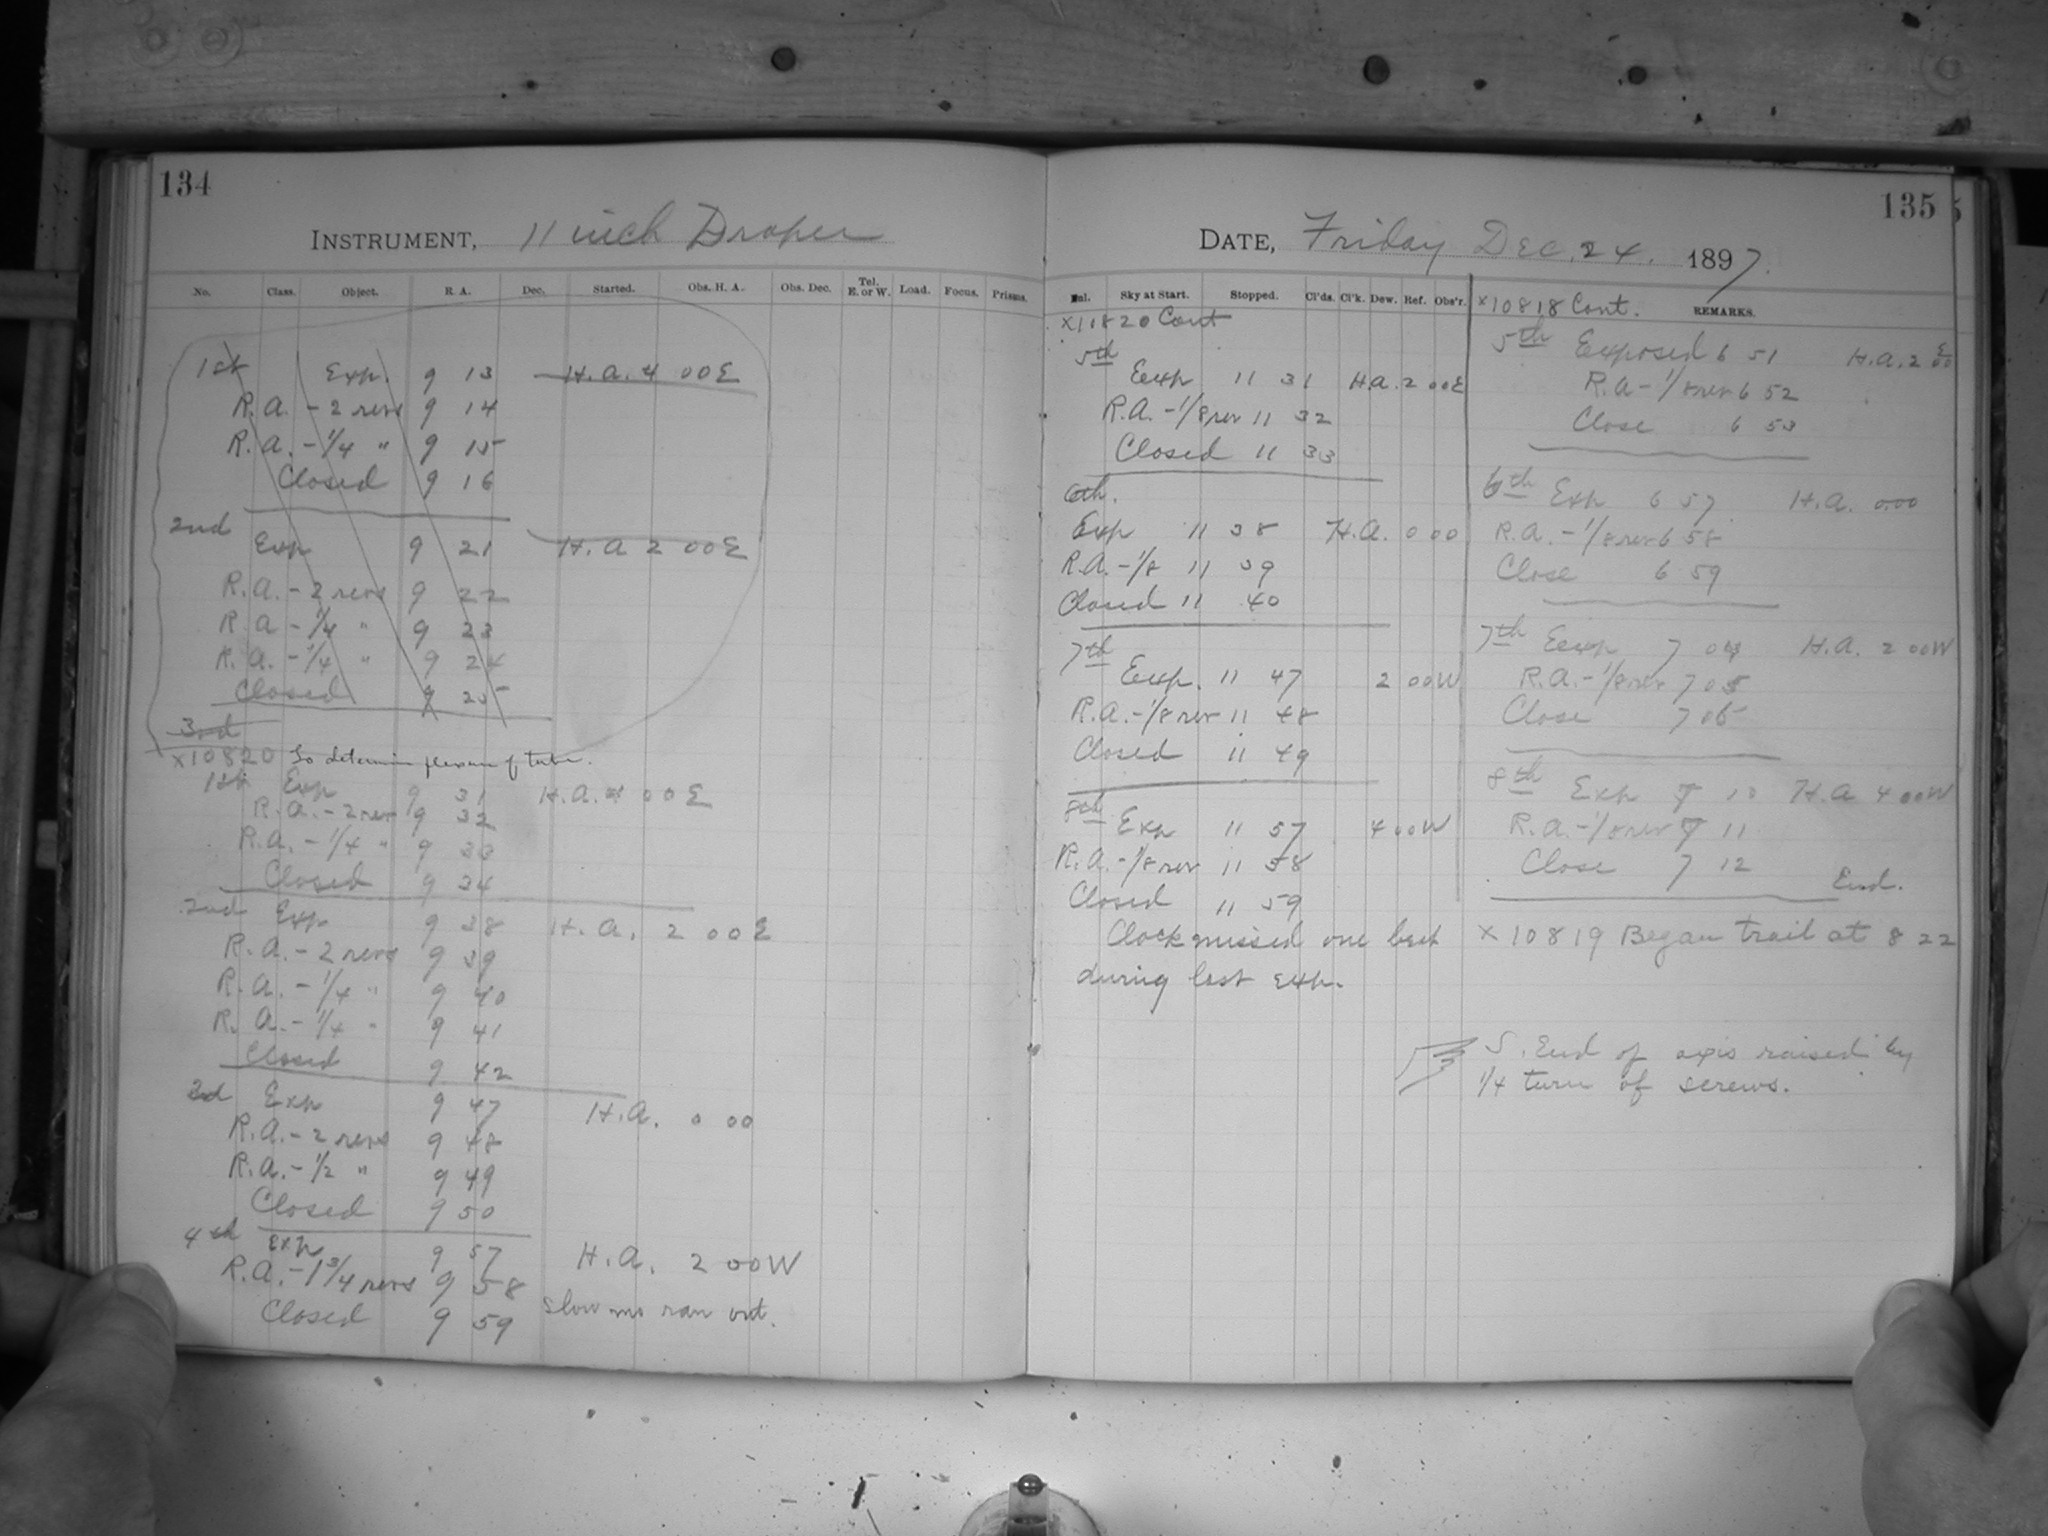 134
INSTRUMENT, 11 inch Draper
No. Class. Object. R. A. Dec. Started. Obs. H. A. Obs. Dec. Tel. E. or W. Load. Focus. Prisms.
1st Exp. 9 13 H.A. 4 00 E
R.A. - 2 revs 9 14
R.A. - 1/4 " 9 15
Closed 9 16
2nd
Exp 9 21 H.A 2 00 E
R.A. - 2 revs 9 22
R.A - 1/4 " 9 23
R.A. - 1/4 " 9 24
Closed 9 25
3rd
x10820 To determine flexure of tube.
1st Exp 9 31 H.A. 4 00 E
R.A. - 2 rev 9 32
R.A. - 1/4 " 9 33
Closed 9 34
2nd Exp 9 38 H.A. 2 00 E
R.A. - 2 revs 9 39
R.A. - 1/4 " 9 40
R.A. - 1/4 " 9 41
Closed 9 42
3rd Exp 9 47 H.A. 0 00
R.A. - 2 revs 9 48
R.A. - 1/2 " 9 49
Closed 9 50
4th Exp 9 57 H.A. 2 00 W
R.A. - 1 3/4 revs 9 58
Closed 9 59 Slow mo ran out.
135
DATE, Friday Dec. 24. 1897.
Sky at Start. Stopped. Cl'ds. Cl'k. Dew. Ref. Obs'r. REMARKS.
x10820 Cont
5th
Exp 11 31 H.A. 2 00 E
R.A. - 1/8 rev 11 32
Closed 11 33
6th.
Exp 11 38 H.A. 0 00
R.A. - 1/8 11 39
Closed 11 40
7th
Exp. 11 47 2 00 W
R.A. - 1/8 rev 11 48
Closed 11 49
8th Exp 11 57 4 00 W
R.A. - 1/8 rev 11 58
Closed 11 59
Clock missed one beat
during last exp.
x10818 Cont.
5th Exposed 6 51 H.A. 2 00 E
R.A - 1/8 rev 6 52
Close 6 53
6th Exp 6 57 H.A. 0 00
R.A. - 1/8 rev 6 58
Close 6 59
7th Exp 7 04 H.A. 2 00 W
R.A. - 1/8 rev 7 05
Close 7 06
8th Exp 7 10 H.A 4 00 W
R.A. - 1/8 rev 7 11
Close 7 12 End.
x10819 Began trail at 8 22
S. End of axis raised by
1/4 turn of screws.